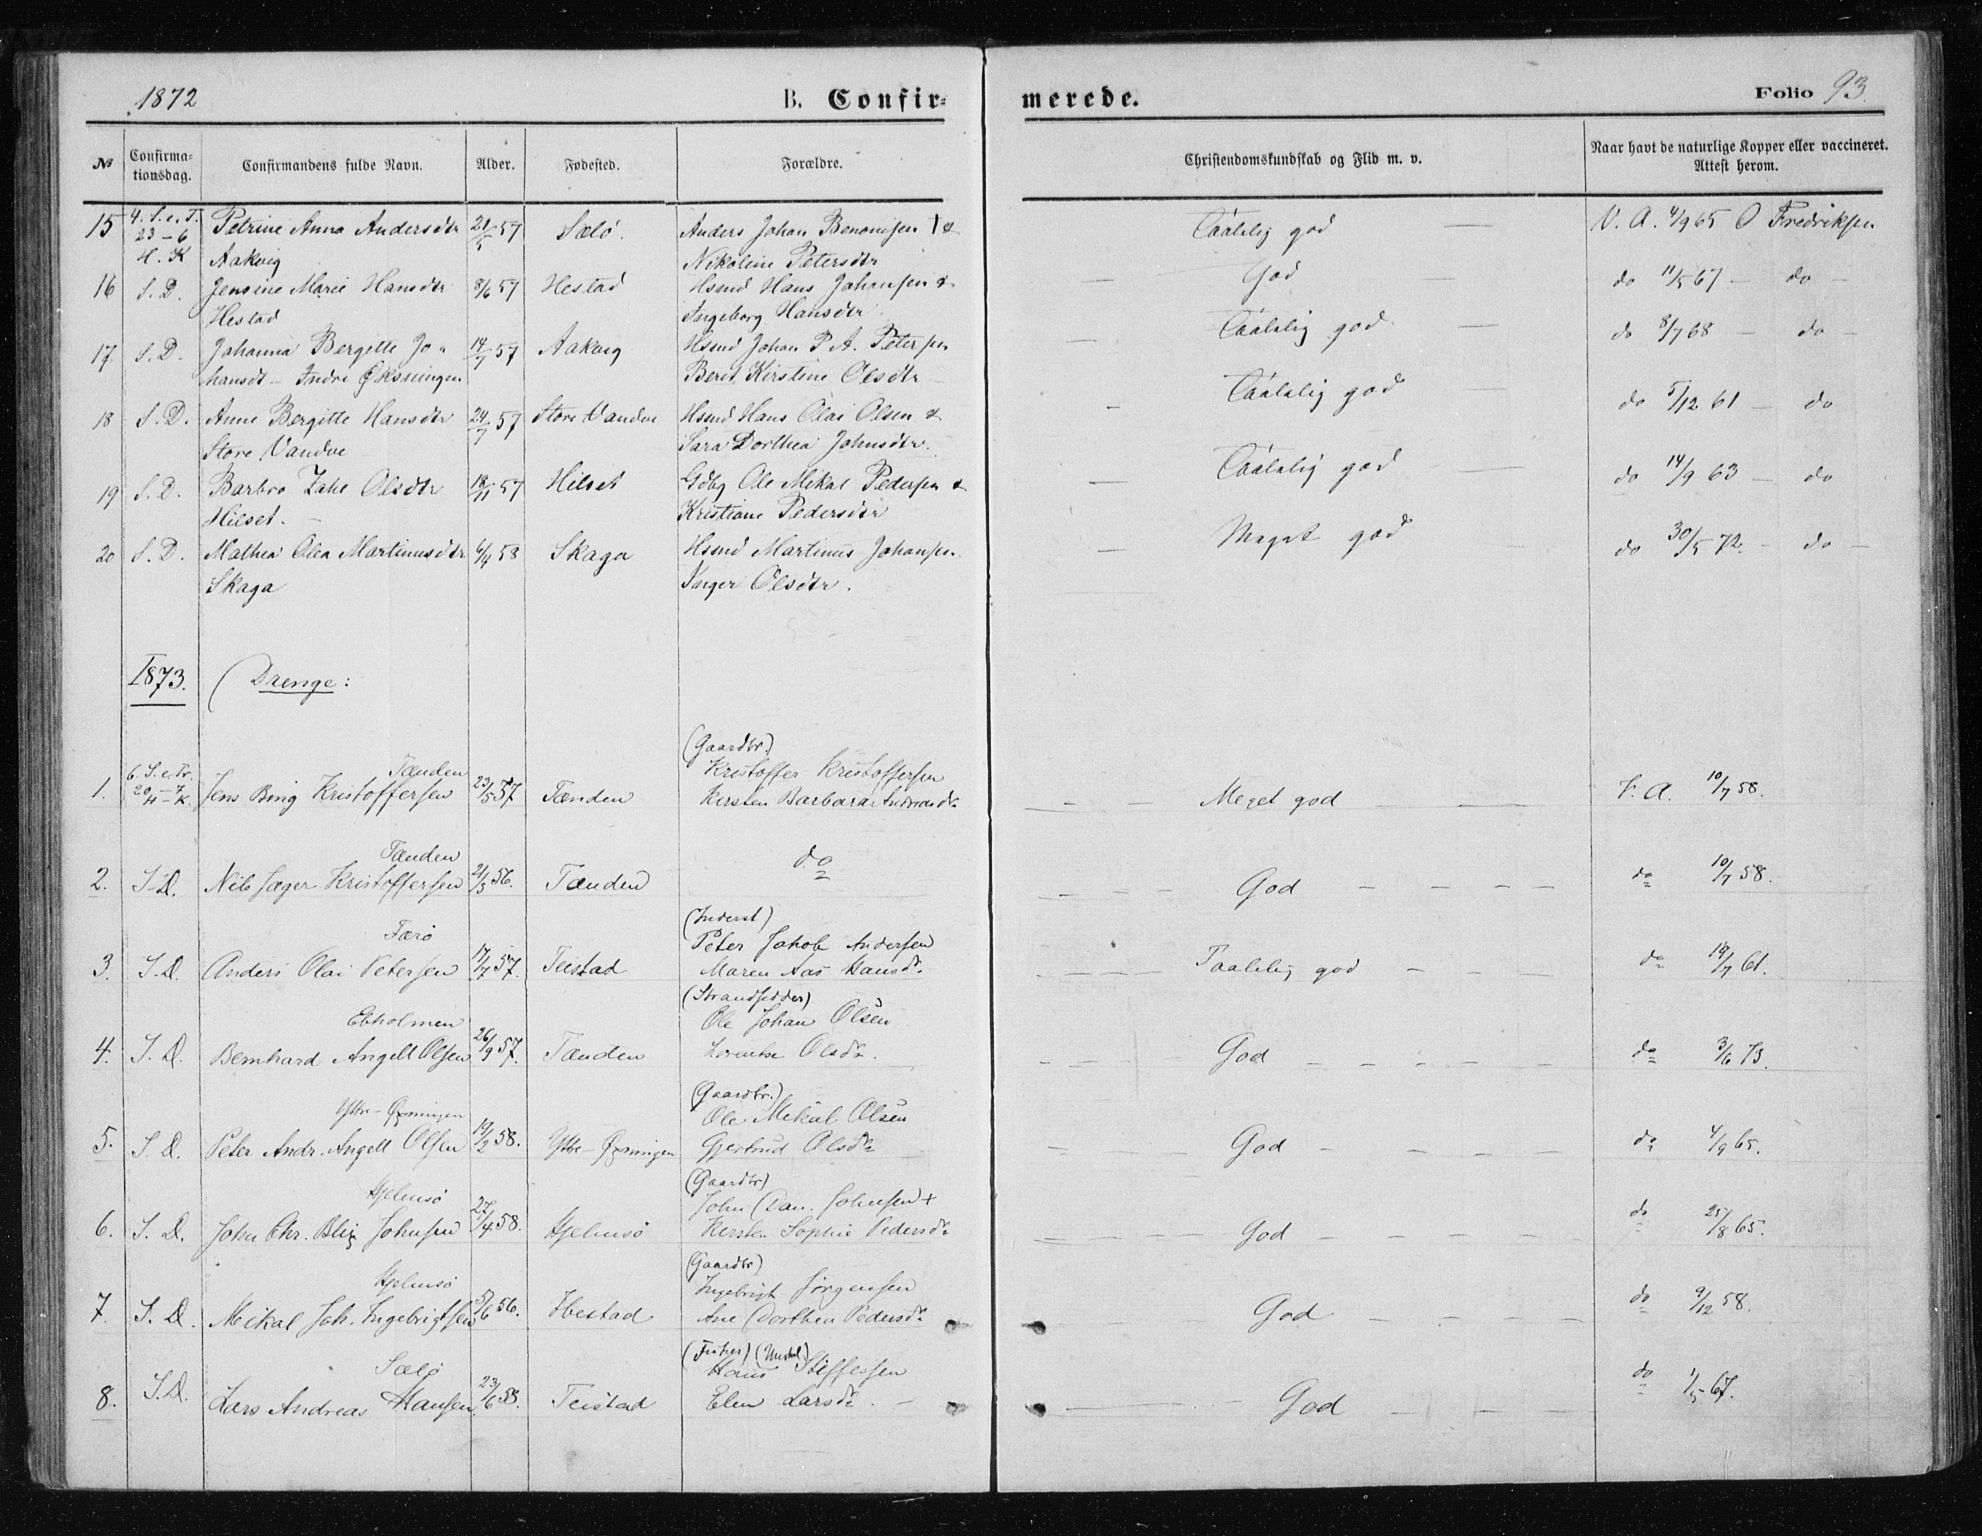 1872 B. Confir-
merede. Folio 93
№ Confirma-tionsdag. Confirmandens fulde Navn. Alder. Fødested. Forældre. Christendomskundskab og Flid m. v. Naar havt de naturlige Kopper eller vaccineret. Attest herom.
15 4. S. e. T. Petrine Anna Andersdtr 21/5 57 Sælö. Anders Johan Benonisen † & Taalelig god — V. A. 4/9 65 O Fredriksen
23-6
H. K Aakvig Nikoline Petersdtr
16 S. D. Marie Hansdtr 8/6 57 Hestad Hsmd Hans Johansen & — God — do 11/5 67 — do —
Hestad Ingeborg Hansdtr
17 S. D. Johanna Bergitte Jo- 14/7 57 Aakvig Hsmd Johan P. A. Petersen — Taalelig god — do 8/7 68 — do —
hansdt — Indre Øksningen Berit Kirstine Olsdtr
18 S. D. Anne Bergitte Hansdtr 24/7 57 Store Vandve Hsmd Hans Olai Olsen & — Taalelig god — do 5/12 61 — do
Store Vandve Sara Dorthea Johnsdtr.
19 S. D. Barbro Olsdtr 18/11 57 Hilset Gdbg Ole Mekal Pedersen & — Taalelig god — do 14/9 63 — do
Hilset. — Kristiane Pedersdtr
20 S. D. Mathea Olea Martinusdtr 6/4 58 Skaga Hsmd Martinus Johansen — Meget god — do 30/5 72. — do —
Skaga Inger Olsdtr.
1873. Drenge:
(Gaardbr.)
6. S. e. Tr. Tænden Kristoffer Kristoffersen
1. 20/7 Jens Bing Kristoffersen 23/5 57 Tænden Kersten Barbara Andreasdr — — Meget god — — V. A. 10/7 58.
Tænden do
2. S. D. Nils Jæger Kristoffersen 21/3 56. Tænden — — — God — — — — do 10/7 58.
(Inderst)
Færö Peter Jakob Andersen
3. S. D. Anders Olai Petersen 17/7 57. Teistad Maren Aas Hansdr. — — Taalelig god — — — do 19/7 61.
(Strandsidder)
Ebholmen Ole Johan Olsen
4. S. D. Bernhard Angell Olsen 26/9 57. Tænden Lorentse Olsdr. — — God — — — — do 3/6 73.
(Gaardbr.)
Ytre-Øxningen Ole Mekal Olsen
5. S. D. Peter Andr. Angell Olsen 19/2 58. Ytre-Øxningen Gjertrud Olsdr — — God — — — — do 4/9 65.
(Gaardbr)
Hjelmsö John Dan. Johnsen +
6. S. D. John Chr. Blix Johnsen 27/4 58. Hjelmsö Kersten Sophie Pedersdr — — God — — — — do 25/8 65.
(Gaardbr)
Hjelmsö Ingebrigt Jörgensen
7. S. D. Mikal Joh. Ingebrigtsen 5/6 56. Hestad Ane Dorthea Pedersdr — — — God — — — — do 9/12 58.
(Fisker)
Sælö Hans Steffessen
8. S. D. Lars Andreas Hansen. 23/6 58. Teistad Elen Larsdr. — — — God — — — do 1/5 67.